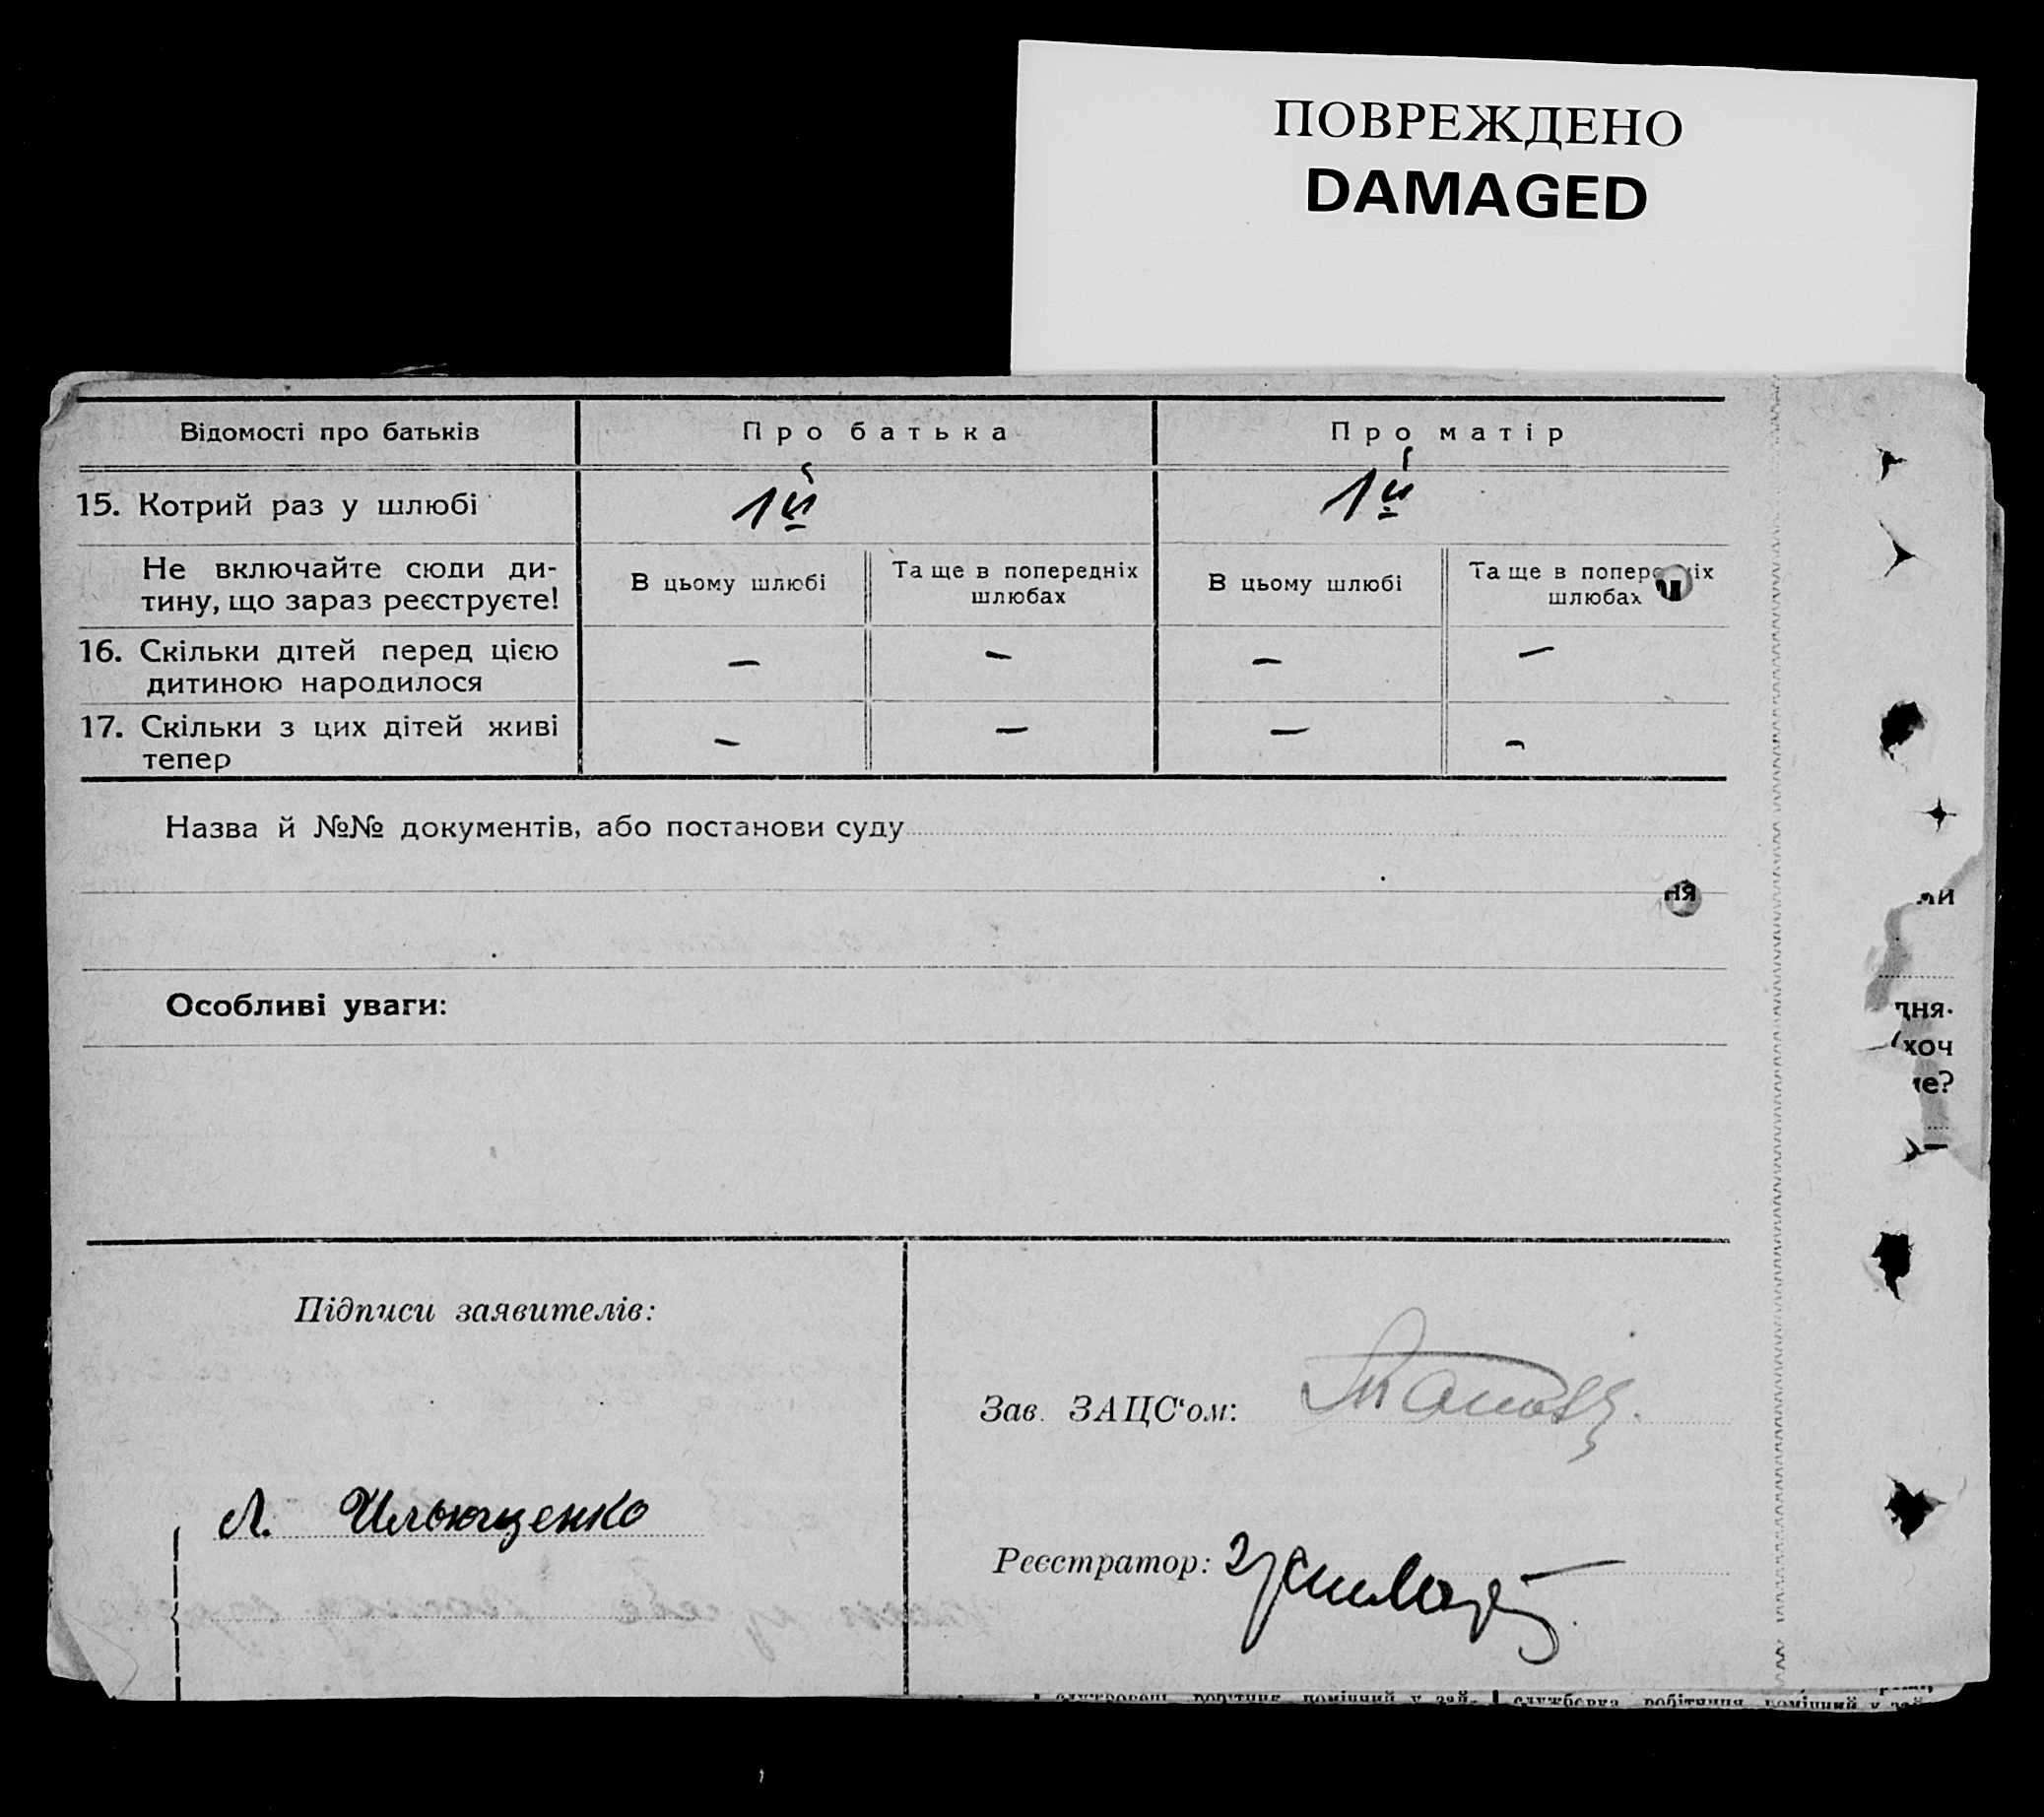 ПОВРЕЖДЕНО
DAMAGED
Відомості про батьків
Про батька
Про матір
15. Котрий раз у шлюбі
1й
1й
Не включайте сюди ди-
тину, що зараз реєструєте!
В цьому шлюбі
Та ще в попередніх
шлюбах
В цьому шлюбі
Та ще в попередніх
шлюбах
16. Скільки дітей перед цією
дитиною народилося
— — — —
17. Скільки з цих дітей живі
тепер
— — — —
Назва й №№ документів, або постанови суду
ня
Особливі уваги:
дня.
хоч
Підписи заявителів:
Зав. ЗАЦС‘ом:
Л. Ильющенко
Реєстратор:
службовець робітник помічний у зай-
службовка робітниця помічний у зай-